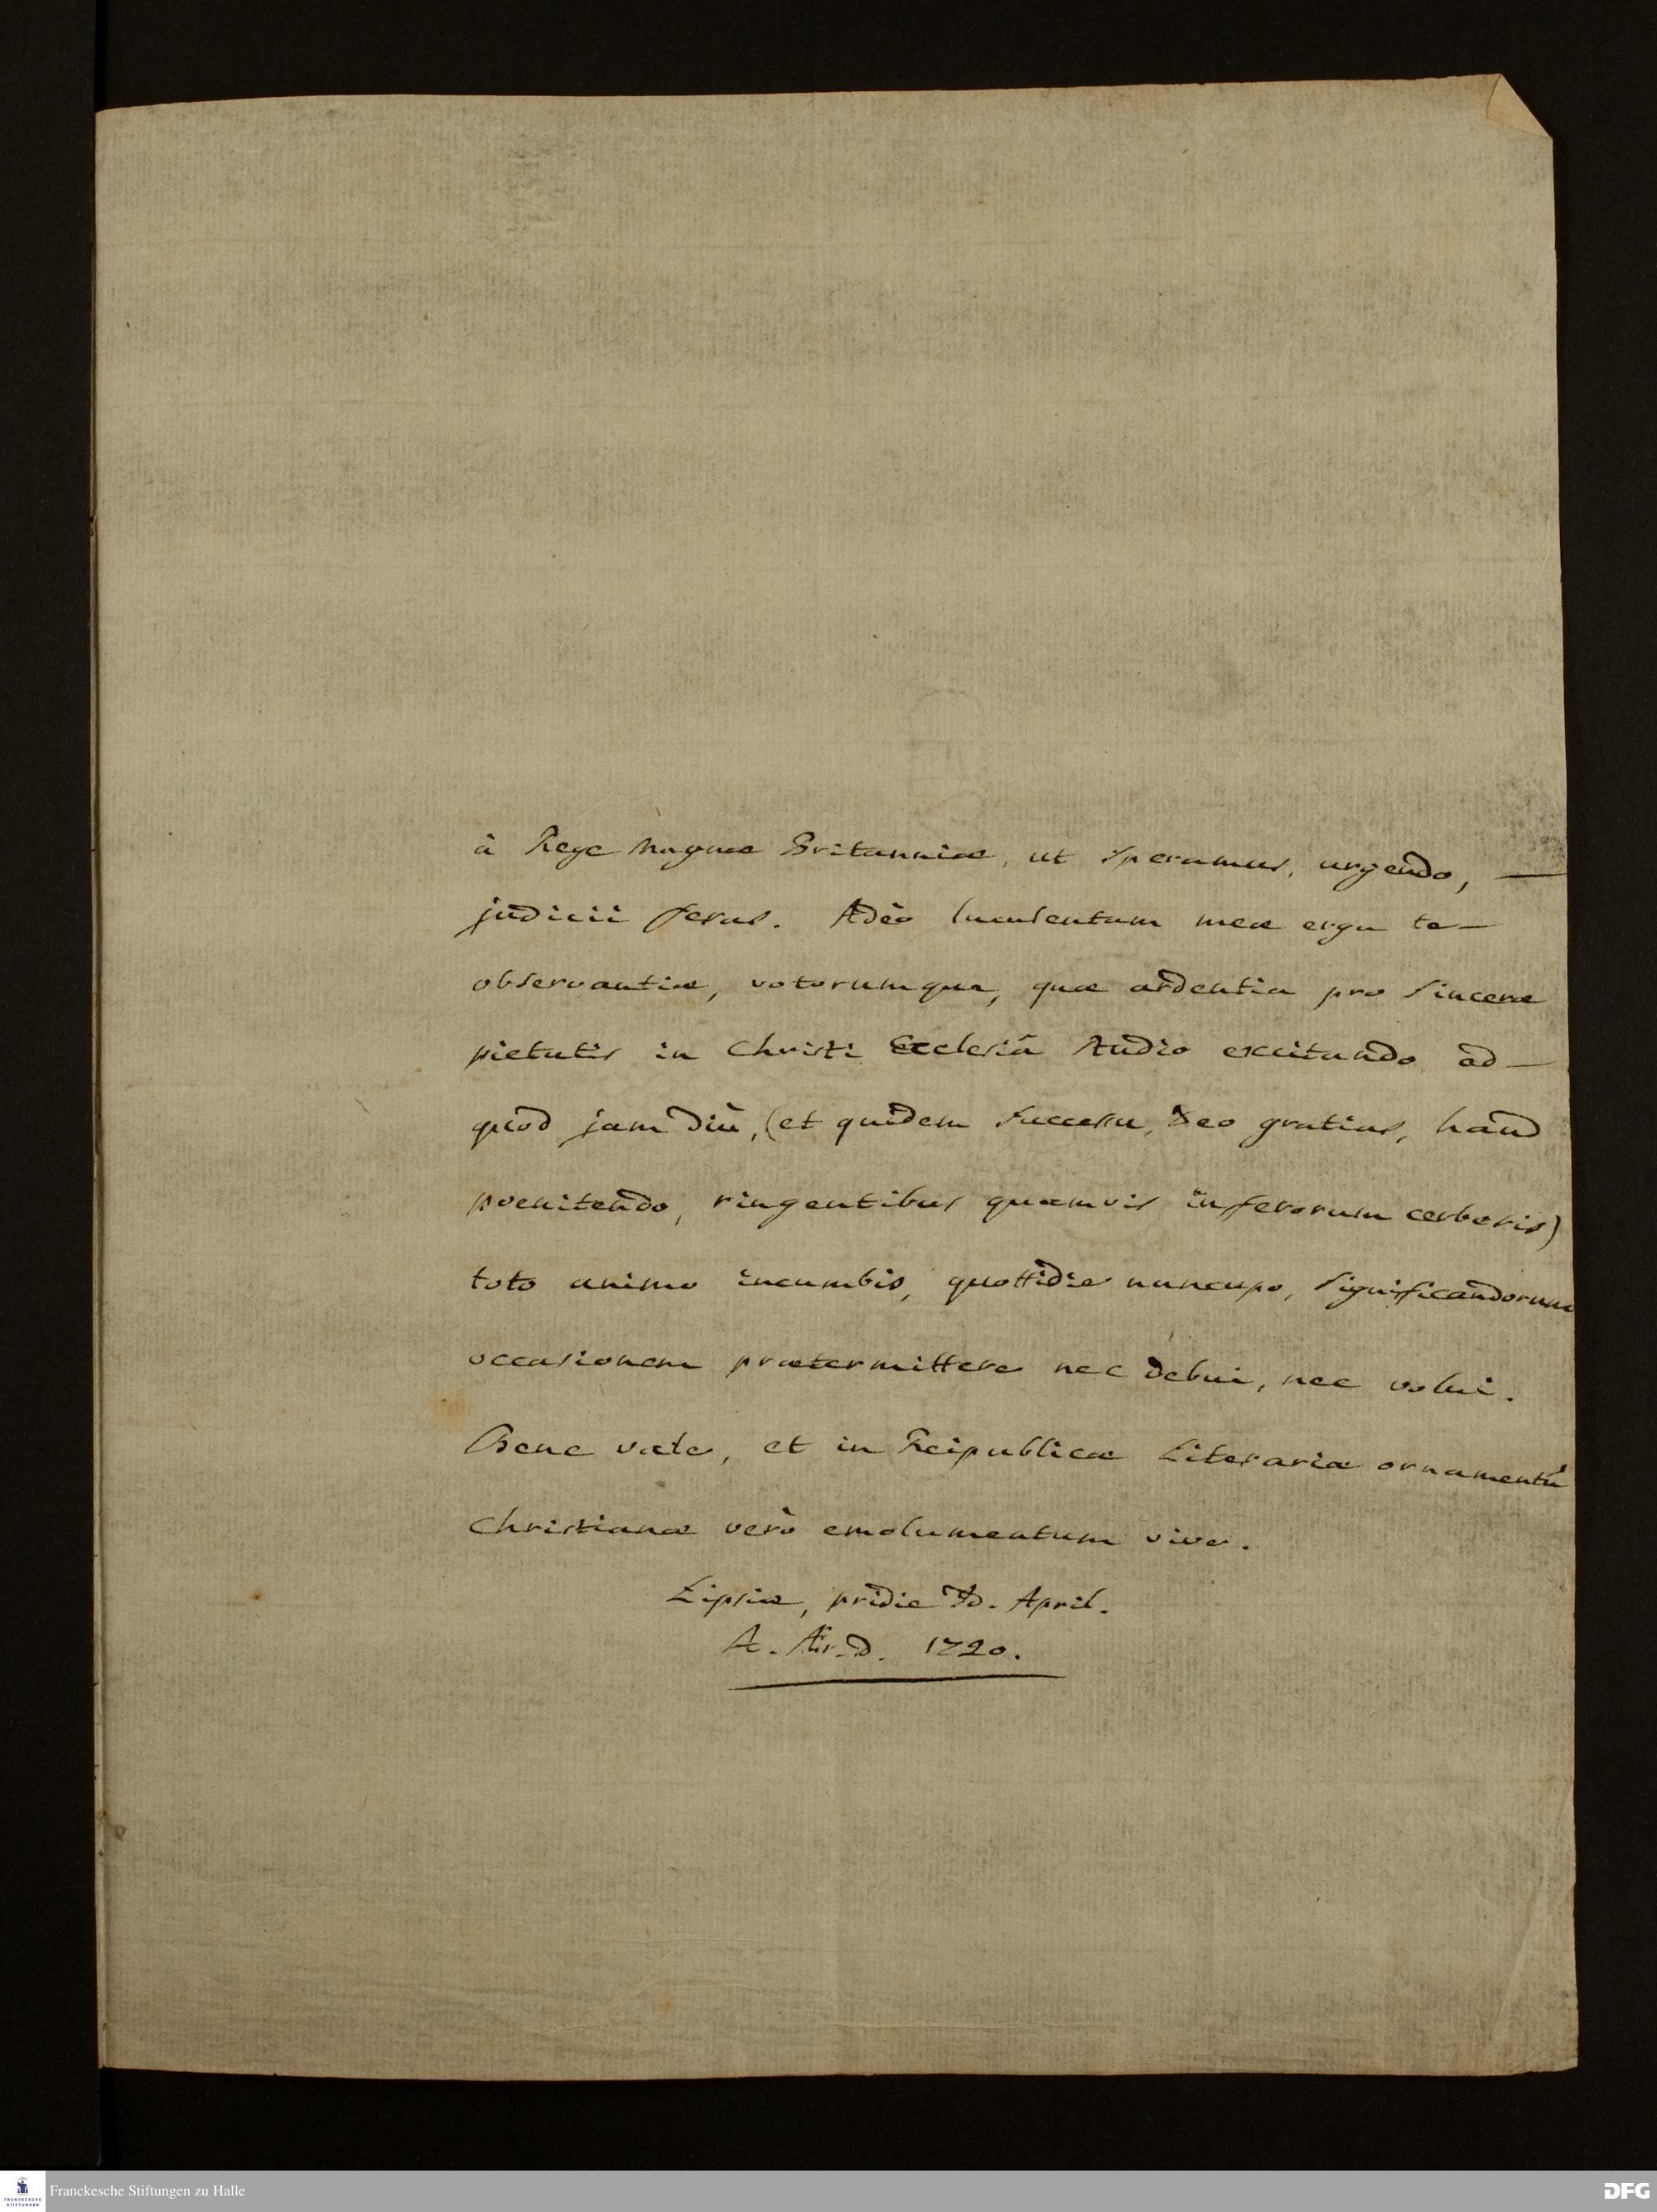 à Rege Magnae Britanniae, ut speramus, urgendo, —
judicii feras. Adeò luculentum meae erga te —
observantiae, votorumque, quae ardentia pro sincerae
pietatis in Christi Ecclesiâ studio excitando ad —
quod jam diù, (et quidem successu, Deo gratias, haud
poenitendo, ringentibus quamvis inferorum cerberis)
toto animo incumbis, quottidie nuncupo, significandorum
occasionem praetermittere nec debui, nec volui.
Bene vale, et in Reipublicae Literariae ornamentū
Christianae verò emolumentum vive.
Lipsiae, pridie Id. April.
A. 1720.
Franckesche Stiftungen zu Halle
FRANCKESCHE
STIFTUNGEN
DFG